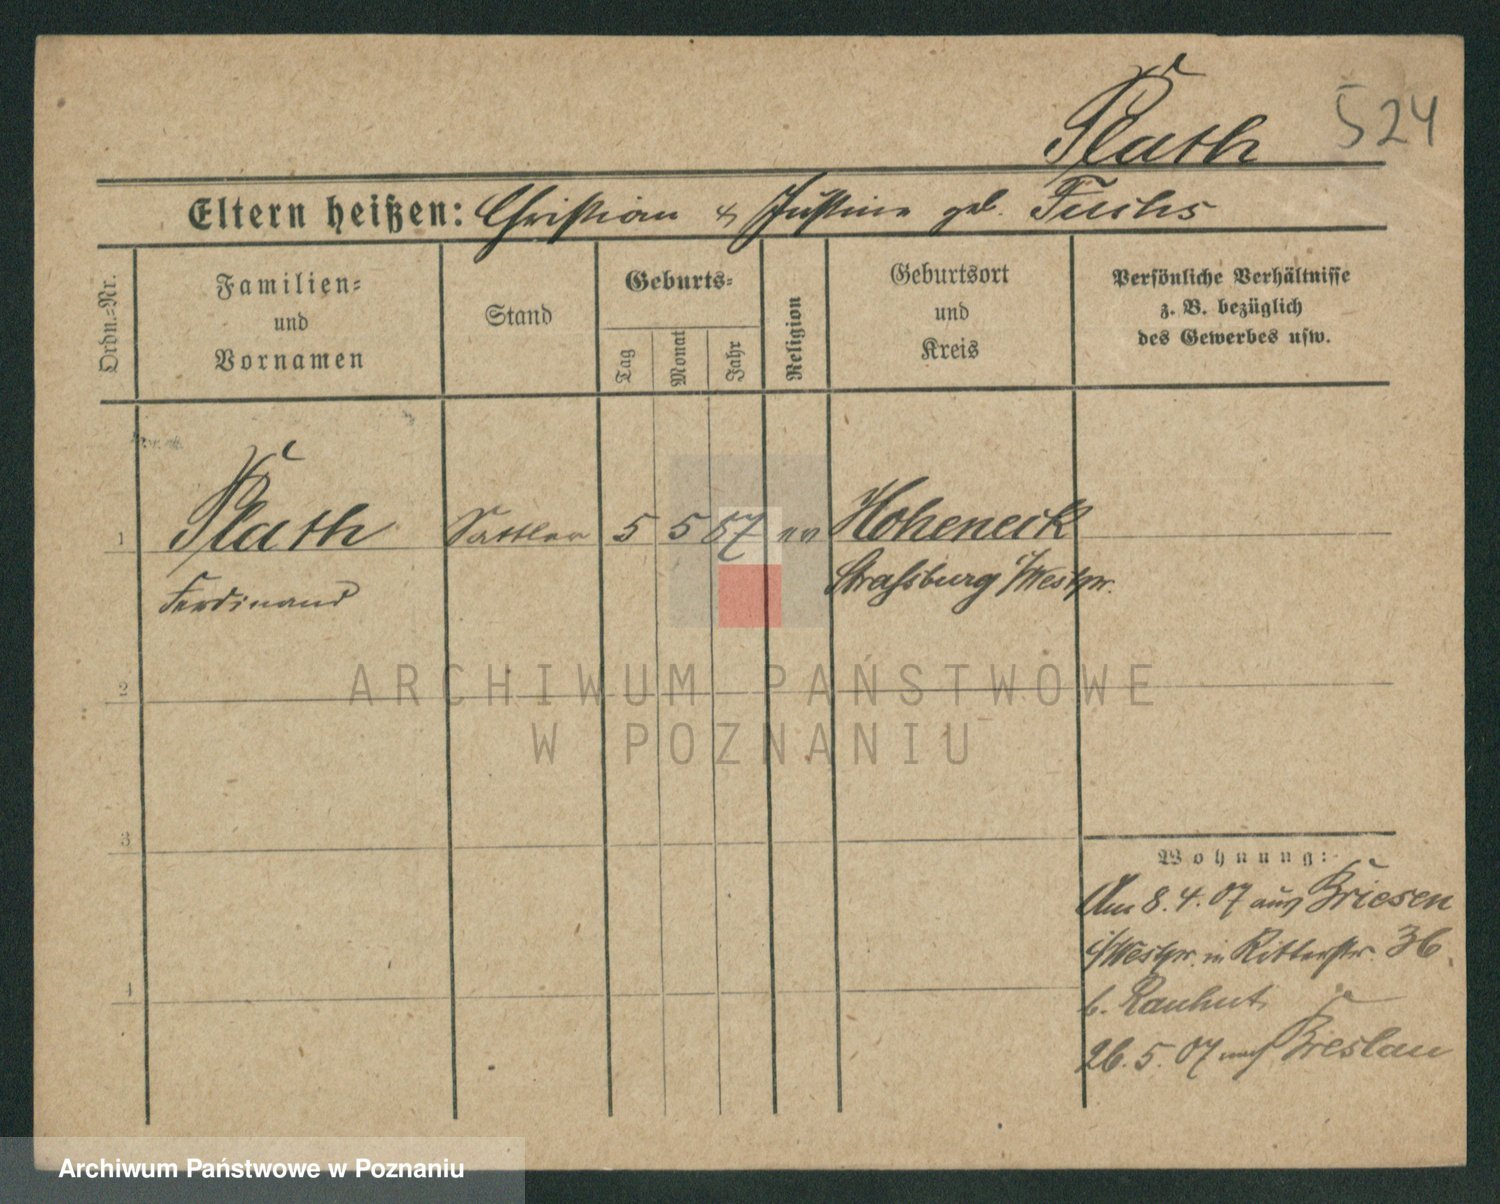 Plath 524
Eltern heißen: Christian & Justine geb. Fuchs
Ordn.-Nr.
Familien- und Vornamen
Stand
Geburts-
Tag
Monat
Jahr
Religion
Geburtsort und Kreis
Persönliche Verhältnisse
z. B. bezüglich
des Gewerbes usw.
1 Plath Sattler 5 5 57 ev Hoheneck
Ferdinand Straßburg i/Westpr.
ARCHIWUM PAŃSTWOWE
W POZNANIU
2
3
4
Wohnung:
Am 8. 4. 07 aus Briesen
i/Westpr. in Ritterstr. 36.
b. Rauhut.
26. 5. 07 nach Breslau
Archiwum Państwowe w Poznaniu